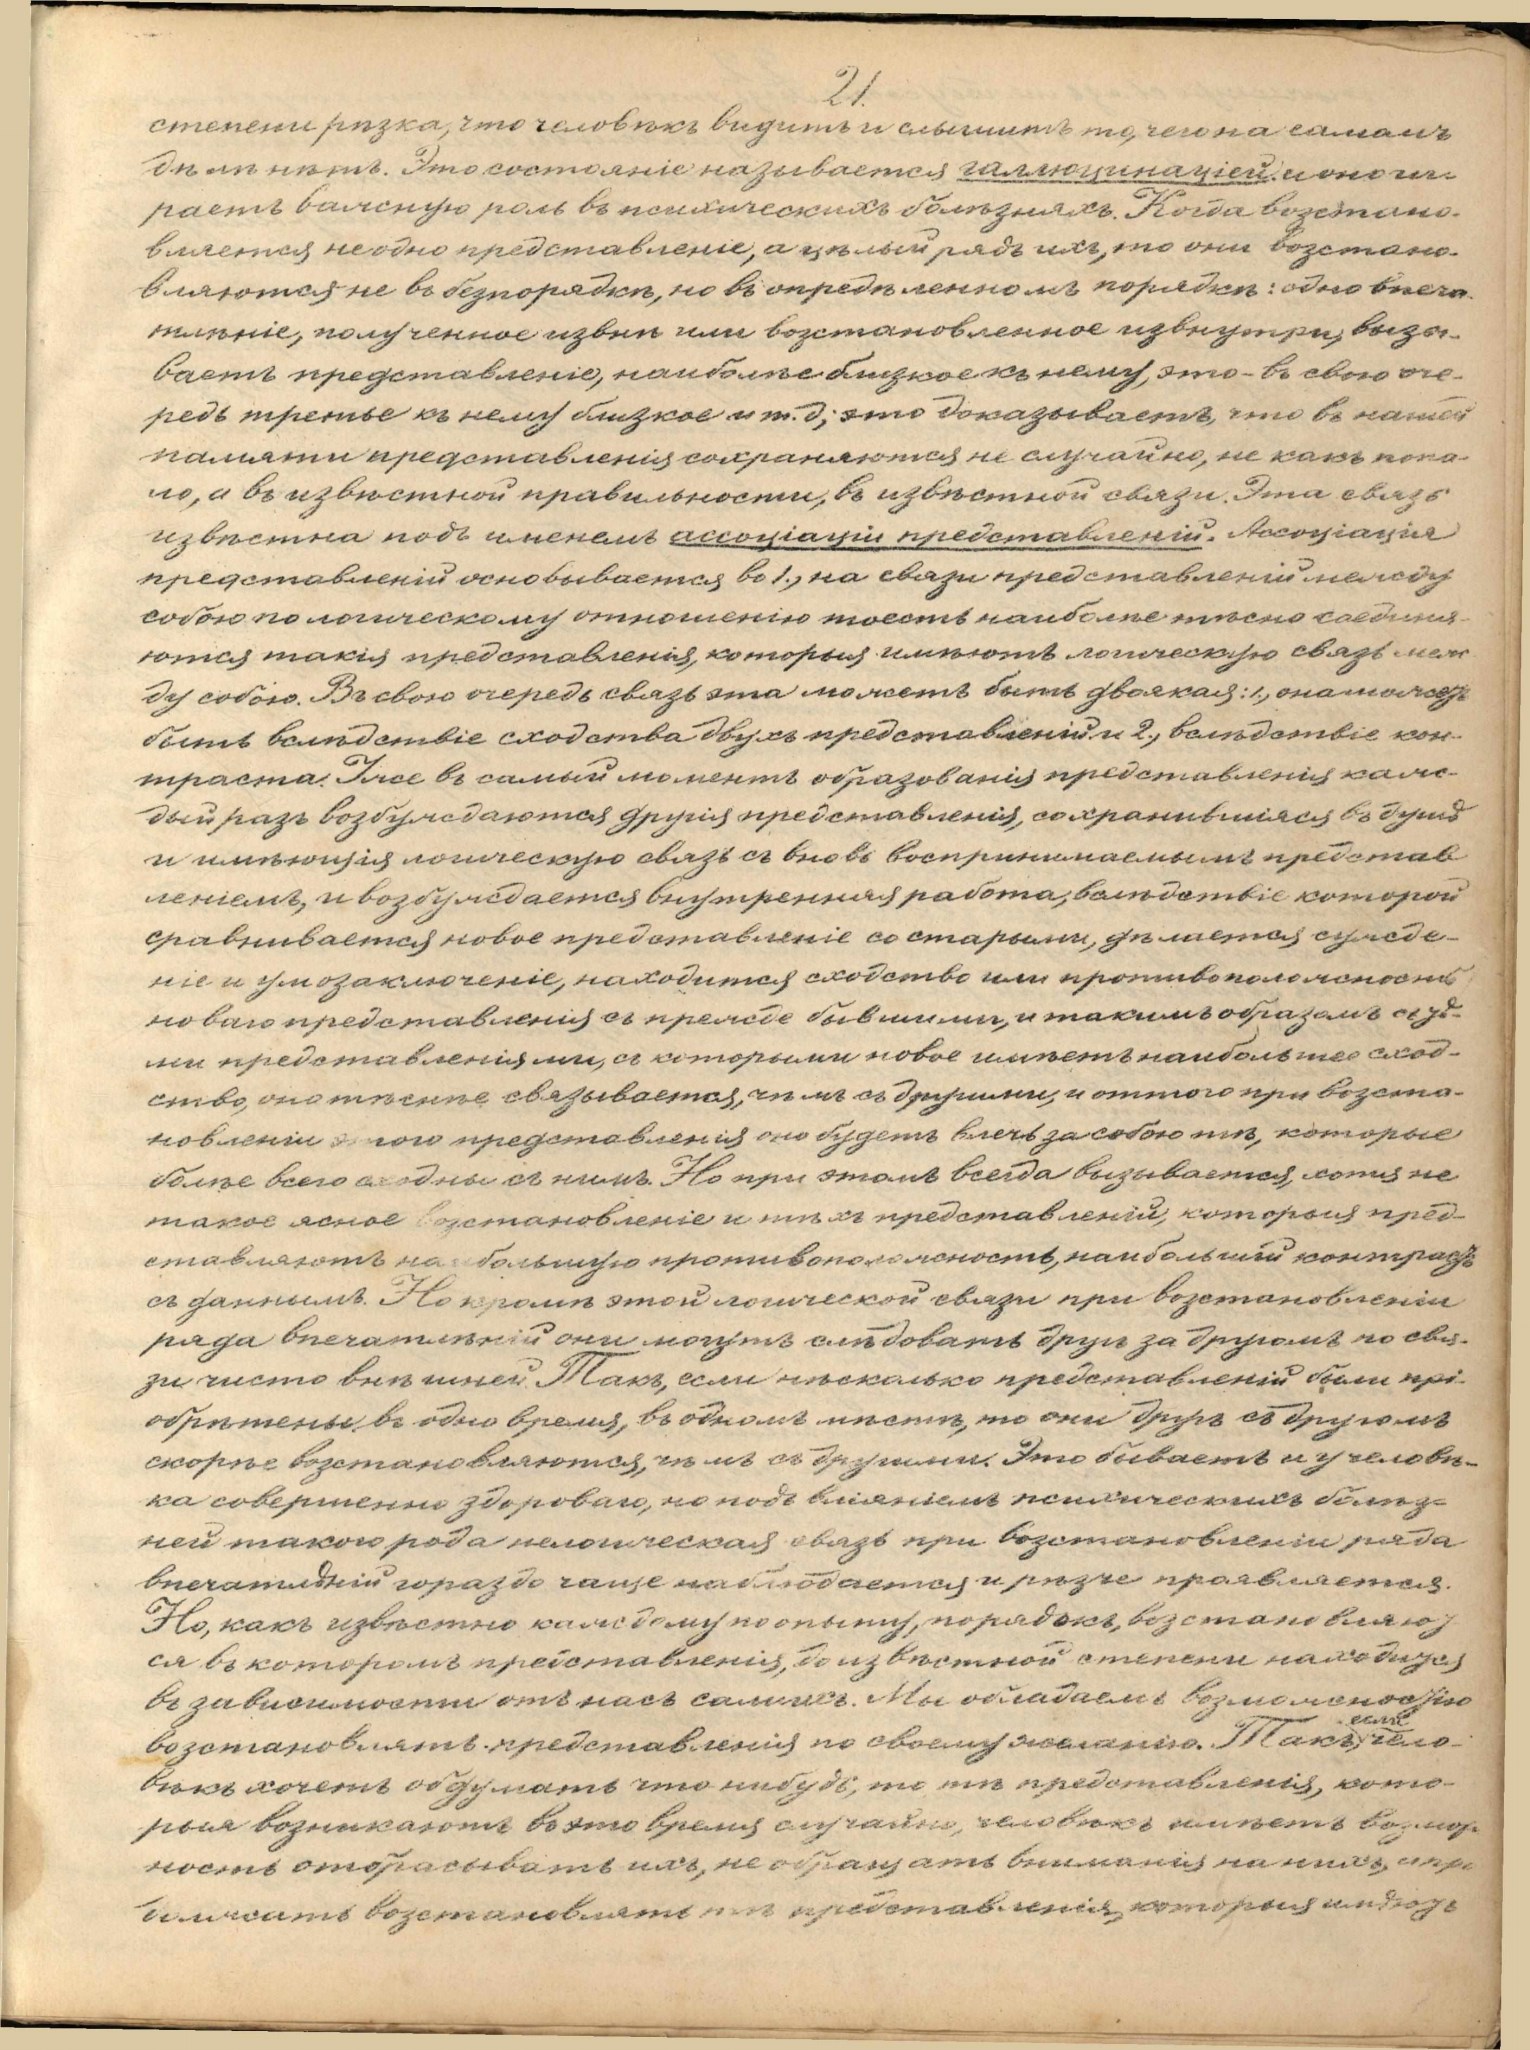 21.
степени рѣзка, что человѣкъ видитъ и слышитъ то, чего на самомъ
дѣлѣ нѣтъ. Это состояніе называется галлюцинаціей и оно иг-
раетъ важную роль въ психическихъ болѣзняхъ. Когда возстано-
вляется не одно представленіе, а цѣлый рядъ ихъ, то они возстано-
вляются не въ безпорядкѣ, но въ опредѣленномъ порядкѣ: одно впеча-
тлѣніе, полученное извнѣ или возстановленное извнутри, вызы-
ваетъ представленіе, наиболѣе близкое къ нему, это - въ свою оче-
редь третье къ нему близкое и т. д; это доказываетъ, что въ нашей
памяти представленія сохраняются не случайно, не какъ попа-
ло, а въ извѣстной правильности, въ извѣстной связи. Эта связь
извѣстна подъ именемъ ассоціаціи представленій. Ассоціація
представленій основывается во 1., на связи представленій между
собою по логическому отношенію тоесть наиболѣе тѣсно соединя-
ются такія представленія, которыя имѣютъ логическую связь меж
ду собою. Въ свою очередь связь эта можетъ быть двоякая: 1., она можетъ
быть вслѣдствіе сходства двухъ представленій и 2., вслѣдствіе кон-
траста. Уже въ самый моментъ образованія представленія каж-
дый разъ возбуждаются другія представленія, сохранившіяся въ душѣ
и имѣющія логическую связь съ вновь воспринимаемымъ представ
леніемъ, и возбуждается внутренняя работа, вслѣдствіе которой
сравнивается новое представленіе со старыми, дѣлается сужде-
ніе и умозаключеніе, находится сходство или противоположность
новаго представленія съ прежде бывшими, и такимъ образомъ съ тѣ-
ми представленіями, съ которыми новое имѣетъ наибольшее сход-
ство, оно тѣснѣе связывается, чѣмъ съ другими, и оттого при возста-
новленіи этого представленія оно будетъ влечь за собою тѣ, которые
болѣе всего сходны съ нимъ. Но при этомъ всегда вызывается, хотя не
такое ясное возстановленіе и тѣхъ представленій, которыя пред-
ставляютъ наибольшую противоположность, наибольшій контрастъ
съ даннымъ. Но кромѣ этой логической связи при возстановленіи
ряда впечатлѣній они могутъ слѣдовать другъ за другомъ по свя-
зи чисто внѣшней. Такъ, если нѣсколько представленій были прі-
обрѣтены въ одно время, въ одномъ мѣстѣ, то они другъ съ другомъ
скорѣе возстановляются, чѣмъ съ другими. Это бываетъ и у человѣ-
ка совершенно здороваго, но подъ вліяніемъ психическихъ болѣз-
ней такого рода нелогическая связь при возстановленіи ряда
впечатлѣній гораздо чаще наблюдается и рѣзче проявляется.
Но, какъ извѣстно каждому по опыту, порядокъ, возстановляют
ся въ которомъ представленія, до извѣстной степени находится
въ зависимости отъ насъ самихъ. Мы обладаемъ возможностію
возстановлять представленія по своему желанію. Такъ, если чело-
вѣкъ хочетъ обдумать что нибудь, то тѣ представленія, кото-
рыя возникаютъ въ это время случайно, человѣкъ имѣетъ возмож
ность отбрасывать ихъ, не обращать вниманія на нихъ, а про
должать возстановлять тѣ представленія, которыя имѣютъ